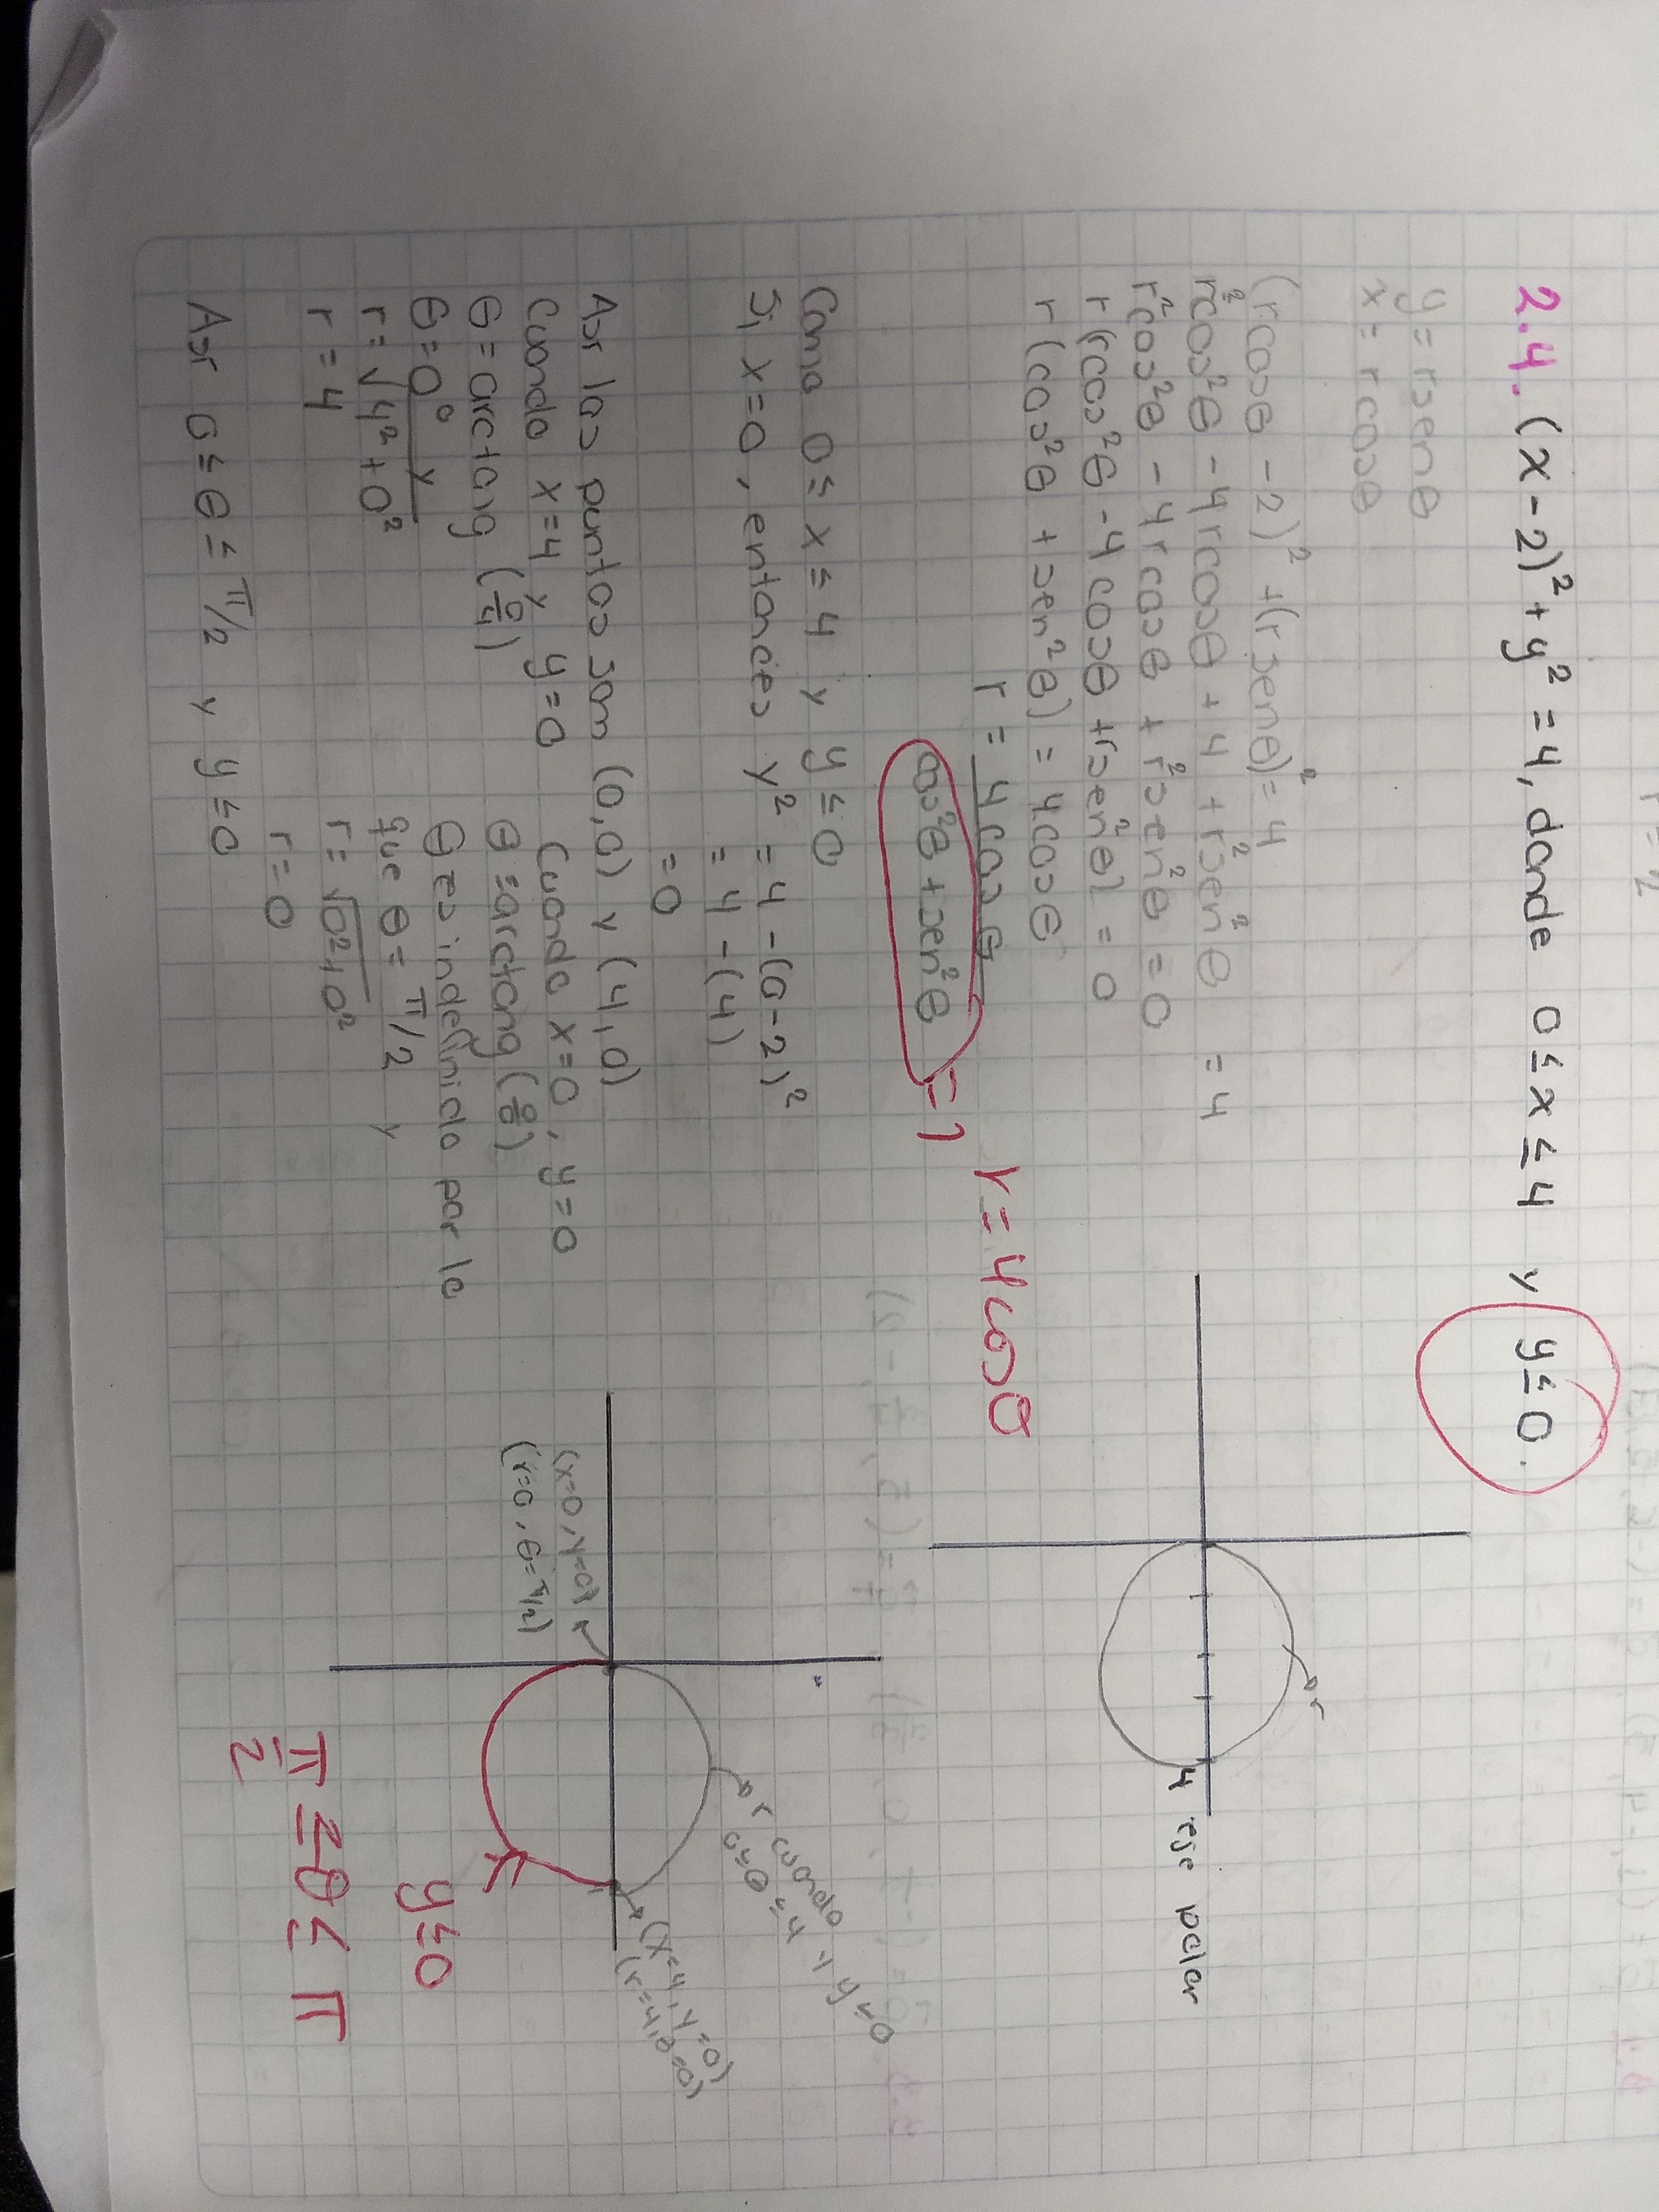 r = 2
2.4. (x-2)² + y² = 4, donde 0 ≤ x ≤ 4 y y ≤ 0.
y = rsenθ
x = rcosθ
(rcosθ - 2)² + (rsenθ)² = 4
r²cos²θ - 4rcosθ + 4 + r²sen²θ = 4
r²cos²θ - 4rcosθ + r²sen²θ = 0
r(rcos²θ - 4cosθ + rsen²θ) = 0
r(cos²θ + sen²θ) = 4cosθ
r = 4cosθ / cos²θ + sen²θ = 1
r = 4cosθ
r
4 eje polar
Como 0 ≤ x ≤ 4 y y ≤ 0
Si x=0, entonces y² = 4 - (0-2)²
= 4 - (4)
= 0
Así los puntos son (0,0) y (4,0)
Cuando x=4 y y=0
θ = arctang (0/4)
θ = 0° y
r = √4² + 0²
r = 4
Cuando x=0, y=0
θ = arctang (0/0)
θ es indefinido por lo
que θ = π/2 y
r = √0² + 0²
r = 0
Así 0 ≤ θ ≤ π/2 y y ≤ 0
r cuando
0 ≤ θ ≤ 4 y y ≤ 0
(x=4, y=0)
(r=4, θ=0)
(x=0, y=0)
(r=0, θ=π/2)
y ≤ 0
π/2 ≤ θ ≤ π